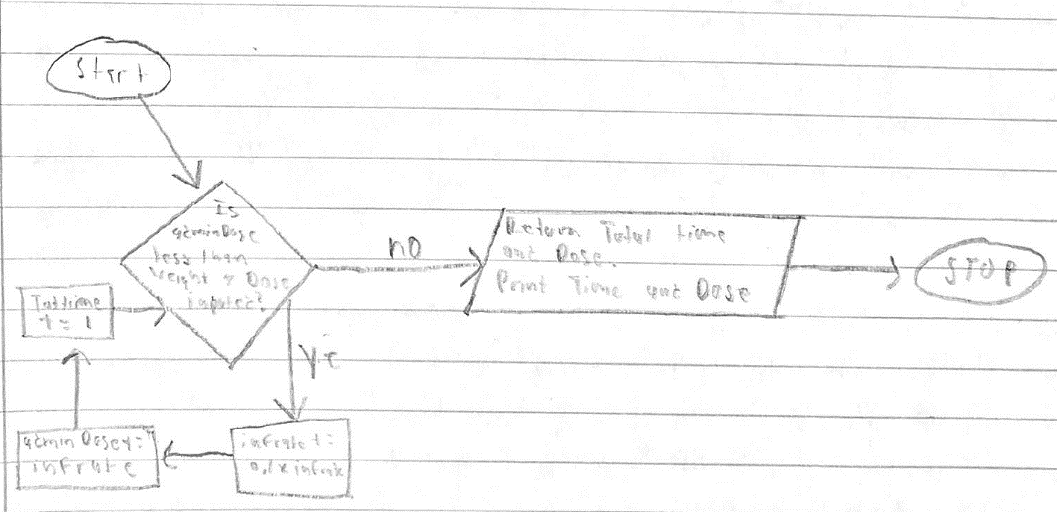 Start
Is
adminDose
less than
weight * Dose
Inputed?
no
Return Total time
and Dose.
Print Time and Dose
STOP
Tottime
+= 1
infrate +=
0.1 x infrate
adminDose +=
infrate